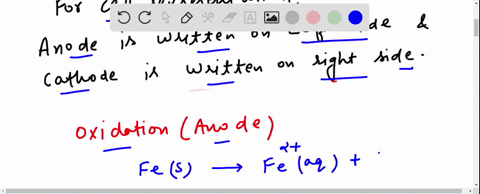 For
Anode is written on side &
Cathode is written on right side.
Oxidation (Anode)
Fe(s) → Fe²⁺(aq) +